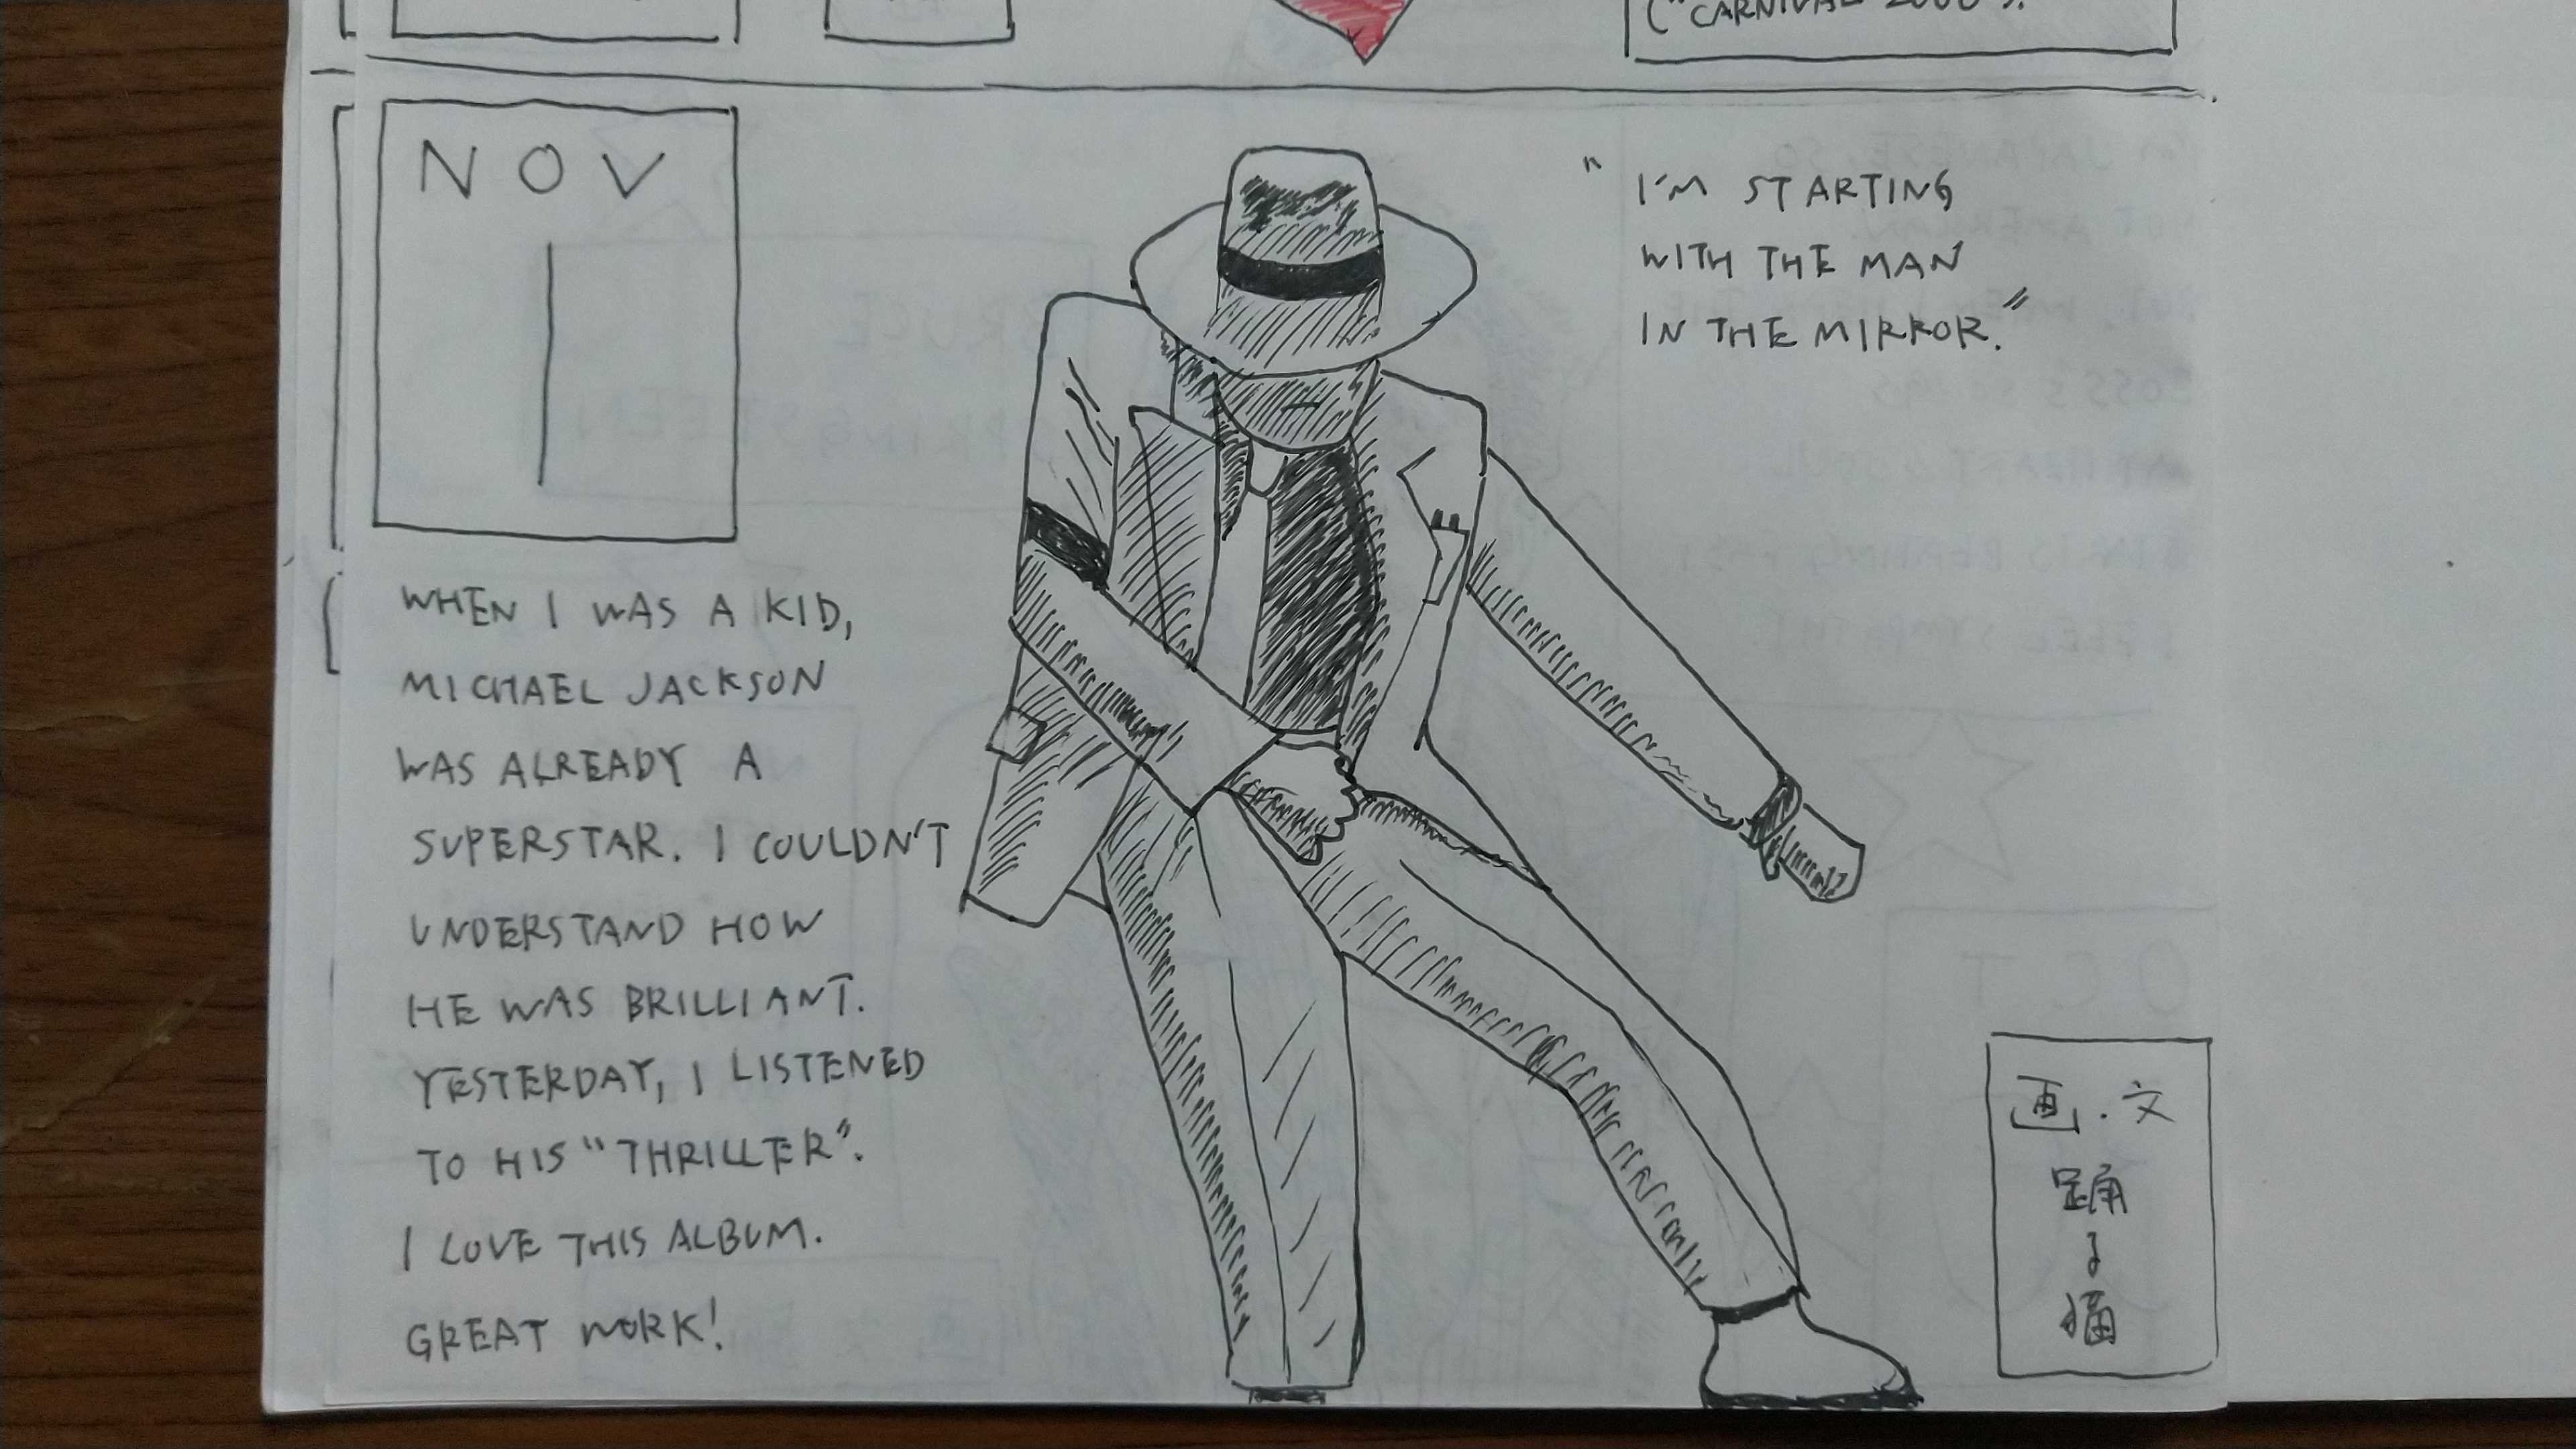 ("CARNIVAL 2000").
NOV
1
"I'M STARTING
WITH THE MAN
IN THE MIRROR."
WHEN I WAS A KID,
MICHAEL JACKSON
WAS ALREADY A
SUPERSTAR. I COULDN'T
UNDERSTAND HOW
HE WAS BRILLIANT.
YESTERDAY, I LISTENED
TO HIS "THRILLER".
I LOVE THIS ALBUM.
GREAT WORK!
画・文
踊
る
猫